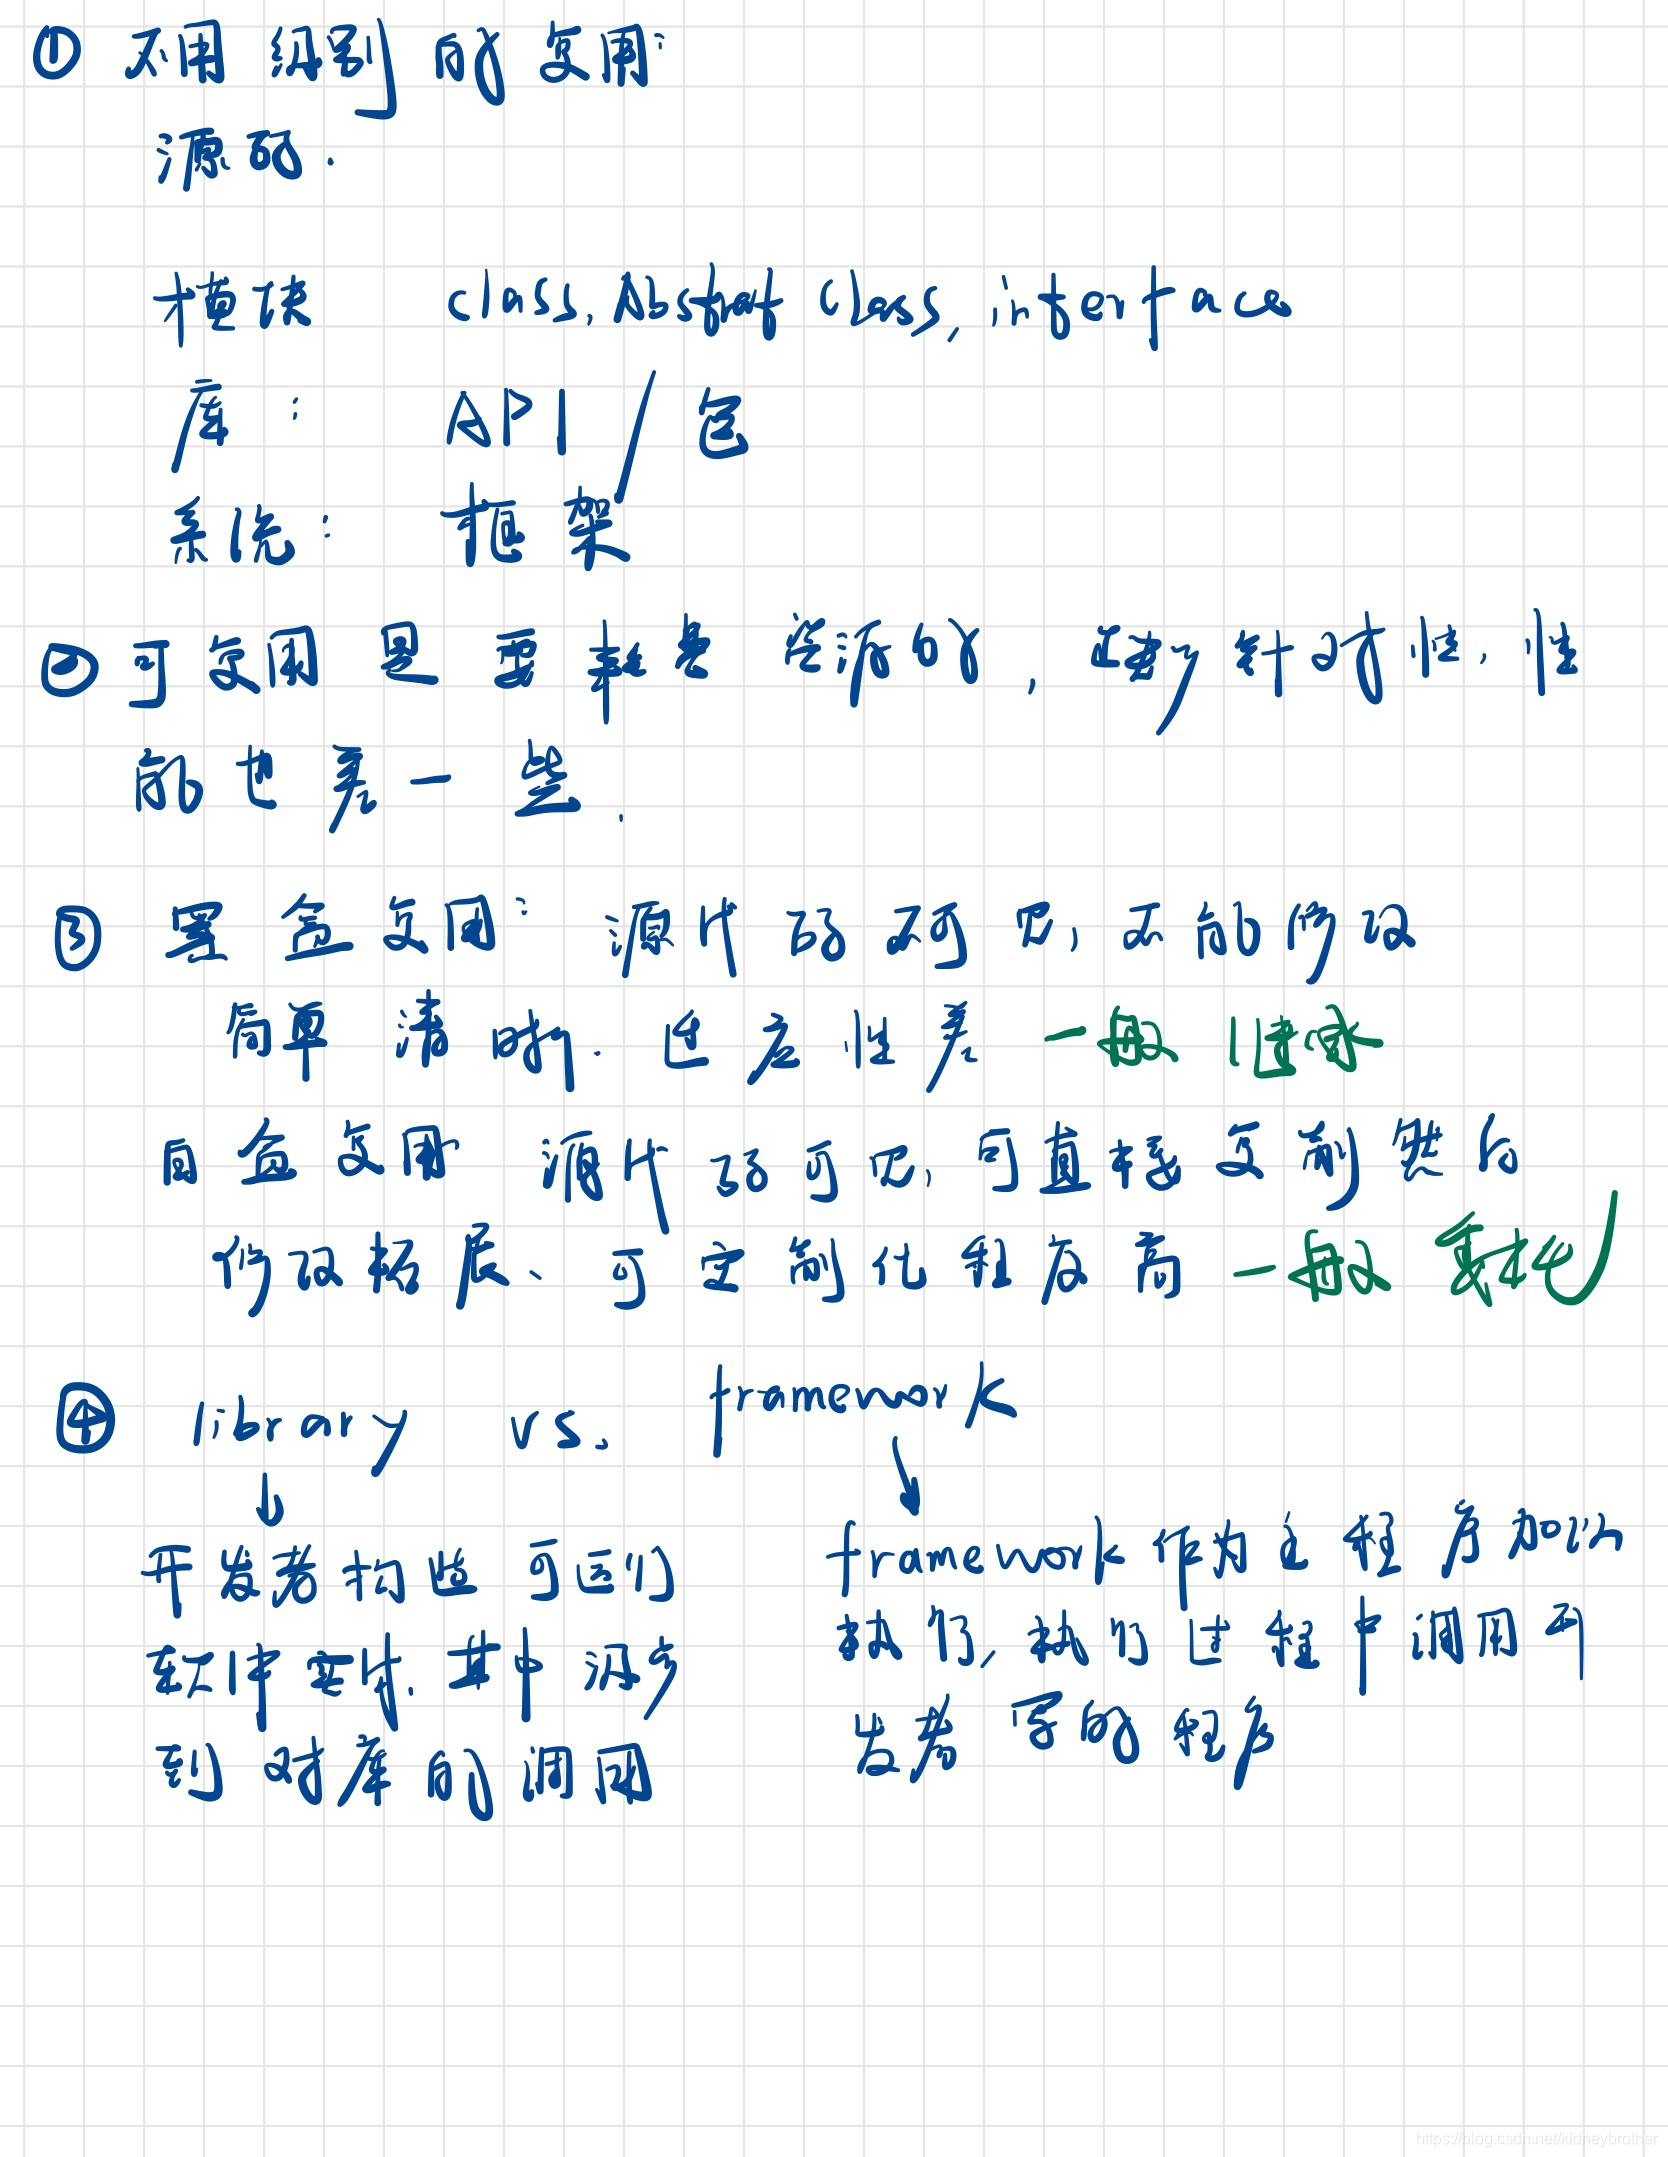 ① 不用级别的复用:
源码.
模块 class, Abstract Class, interface
库: API / 包
系统: 框架
② 可复用是要耗费资源的, 缺乏针对性, 性
能也差一些.
③ 黑盒复用: 源代码不可见, 不能修改
简单清晰. 适应性差 一般
白盒复用 源代码可见, 可直接复制然后
修改拓展、可定制化程度高 一般
④ library vs. framework
↓ ↓
开发者构造可运行
软件实体, 其中涉及
到对库的调用
framework 作为主程序加以
执行, 执行过程中调用开
发者写的程序
https://blog.csdn.net/kidneybrother